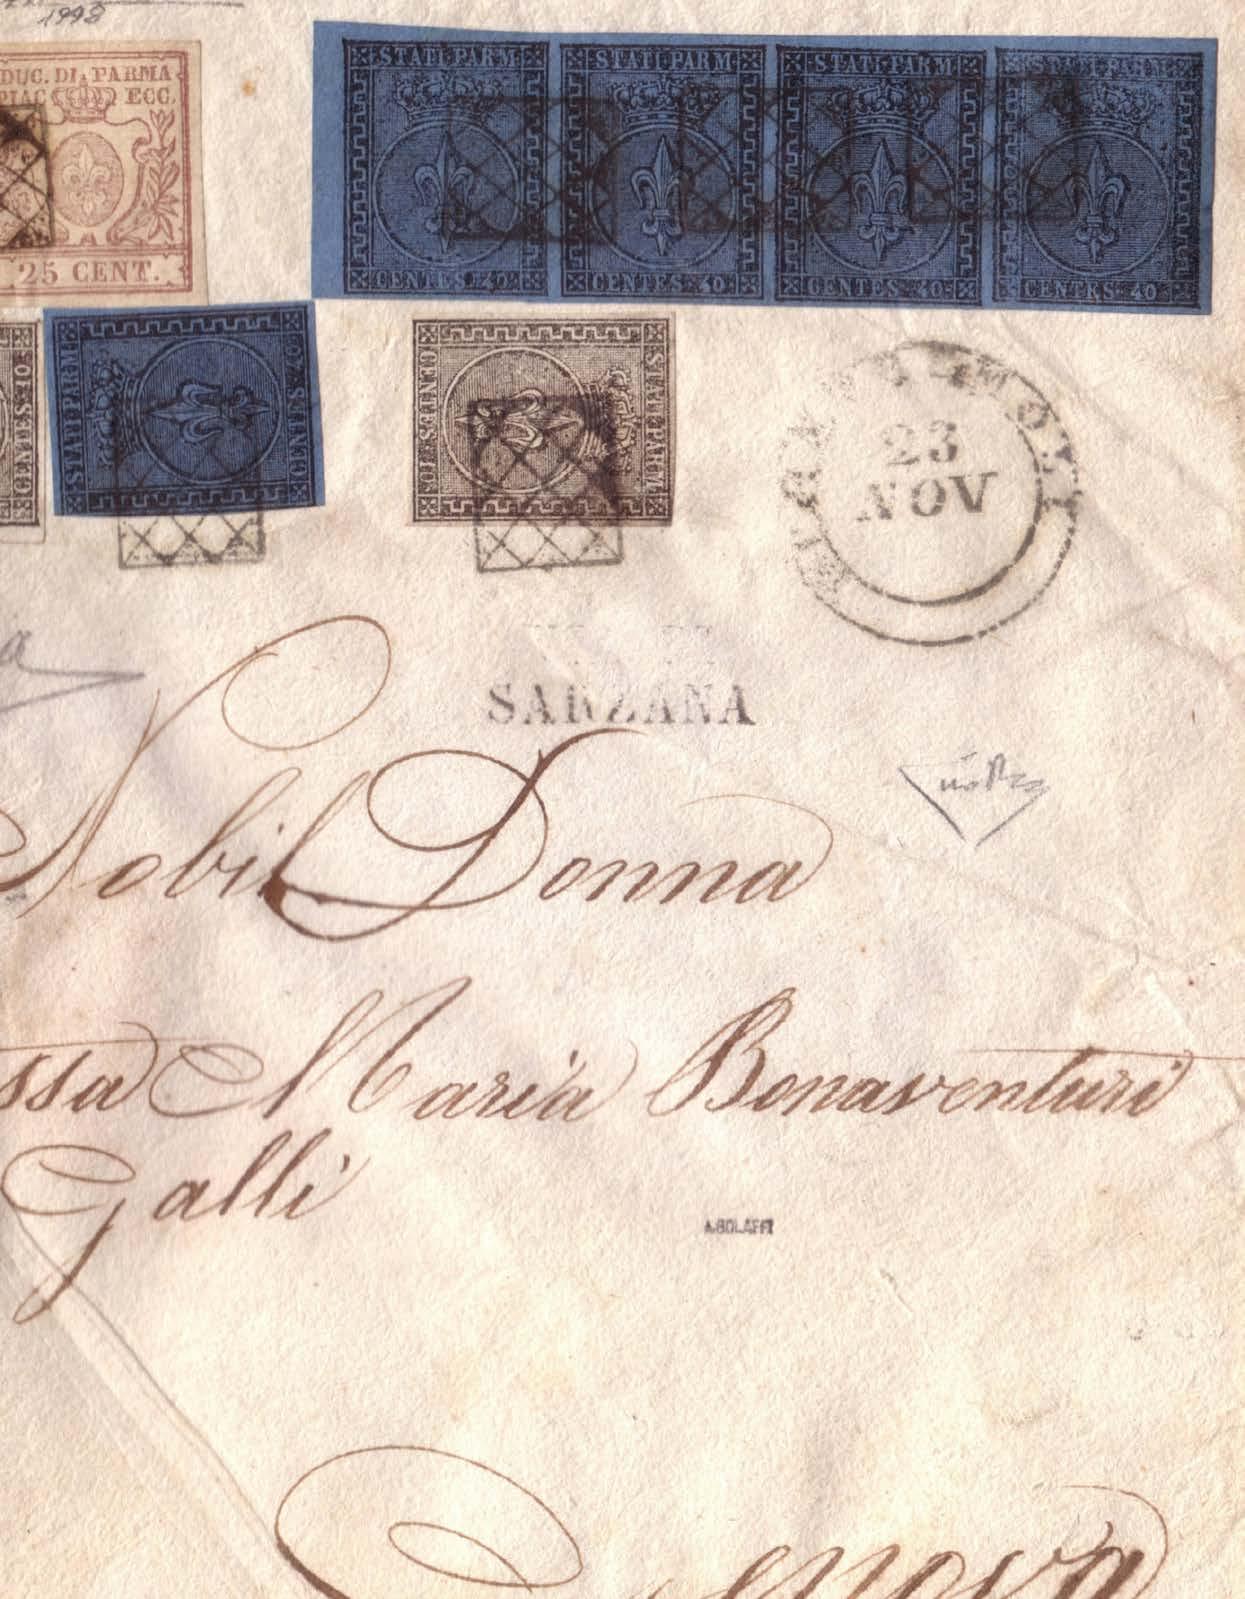 1998
DUC. DI PARMA
PIAC ECC.
25 CENT.
STATI PARM
CENTES. 40
STATI PARM
CENTES. 40
STATI PARM
CENTES. 40
STATI PARM
CENTES. 40
CENTES 10
STATI PARM
CENTES 40
STATI PARM
CENTES 10
23
NOV
SARZANA
Nobil Donna
ssa Maria Bonaventuri
Galli
A.BOLAFFI
Genova